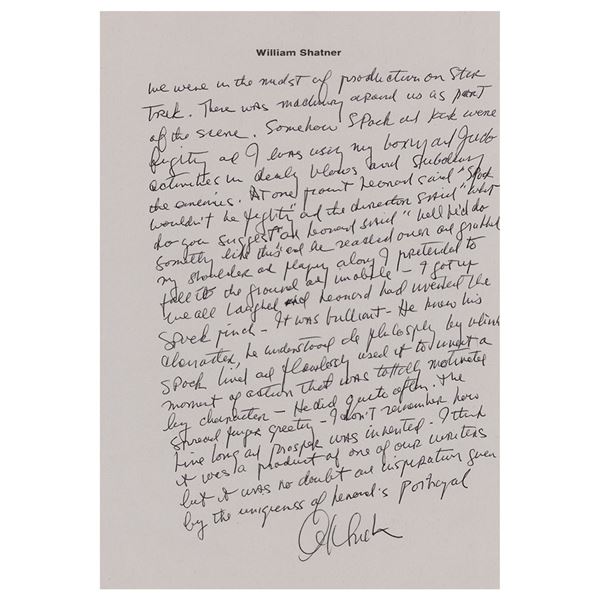 William Shatner
we were in the midst of production on Star
Trek. There was machinery around us as part
of the scene. Somehow Spock and Kirk were
fighting and I was using my boxing and Judo
activities in deadly blows and subduing
the enemies. At one point Leonard said "Spock
wouldn't be fighting" and the director said "what
do you suggest" and Leonard said "well he'd do
something like this" and he reached over and grabbed
my shoulder and playing along I pretended to
fall to the ground and immobile - I got up
we all laughed and Leonard had invented the
Spock pinch - It was brilliant - He knew his
character, he understood the philosophy by which
Spock lived and flawlessly used it to invent a
moment of action that was totally motivated
by character - He did quite often. The
spread finger greeting - I don't remember how
Live long and prosper was invented. I think
it was a product of one of our writers
but it was no doubt an inspiration given
by the uniqueness of Leonard's portrayal